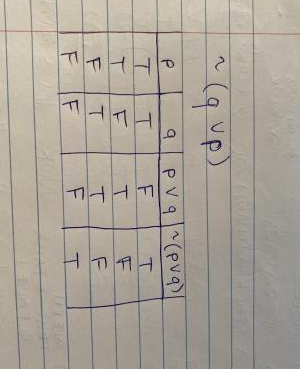 ~(q ∨ p)
p q p∨q ~(p∨q)
T T F T
T F T F
F T T F
F F F T